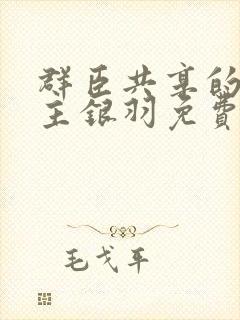 群臣共享的
主银羽免費
毛戈平